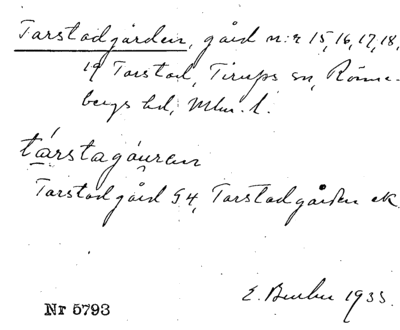 Tarstadgården, gård n:r 15, 16, 17, 18,
19 Tarstad, Tirups sn, Rönne-
bergs hd, Mlm. l.
társtagáuren
Tarstad gård G4, Tarstadgården ek.
E. 1933.
Nr 5793